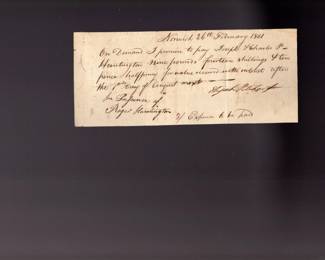 Norwich 26th February 1801
On Demand I promise to pay Joseph & Charles P
Huntington Nine pounds fourteen shillings & two
pence halfpenny for value received with interest after
the 1st Day of August next
In Presence of
Roger Huntington
2/ Expence to be paid